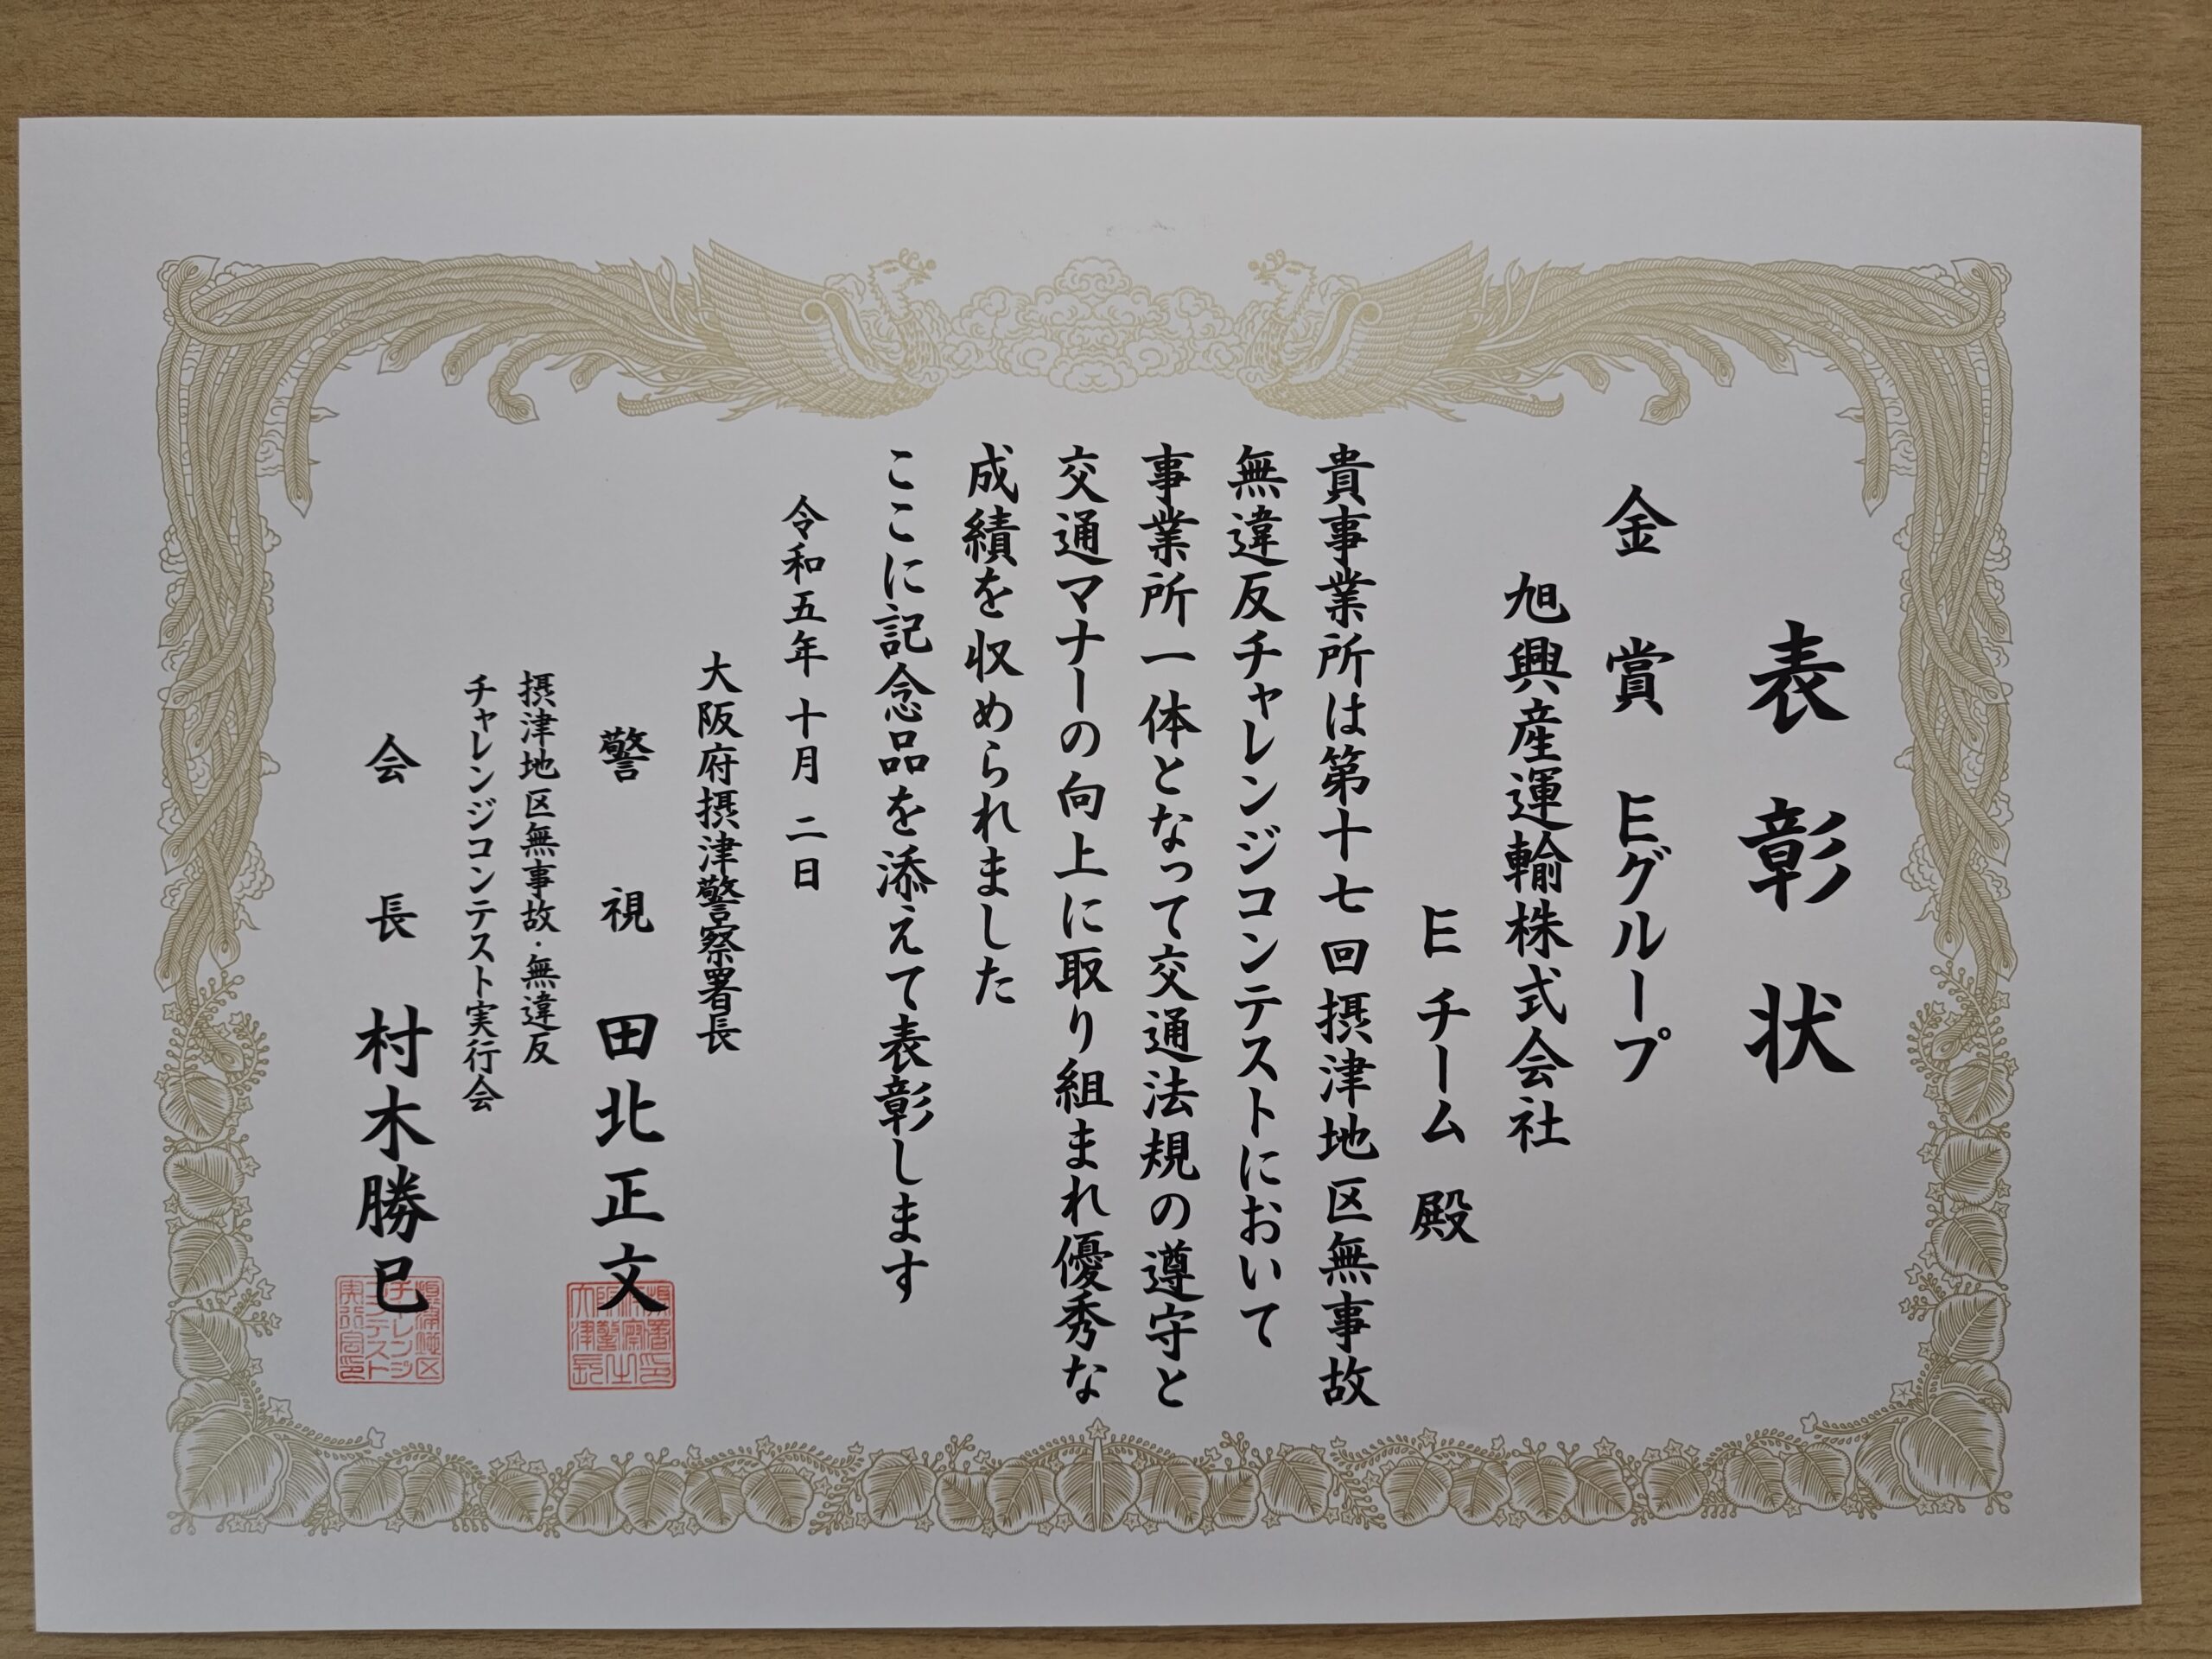 表彰状
金賞 Eグループ
旭興産運輸株式会社
Eチーム 殿
貴事業所は第十七回摂津地区無事故
無違反チャレンジコンテストにおいて
事業所一体となって交通法規の遵守と
交通マナーの向上に取り組まれ優秀な
成績を収められました
ここに記念品を添えて表彰します
令和五年十月二日
大阪府摂津警察署長
警視 田北正文
摂津地区無事故・無違反
チャレンジコンテスト実行会
会長 村木勝巳